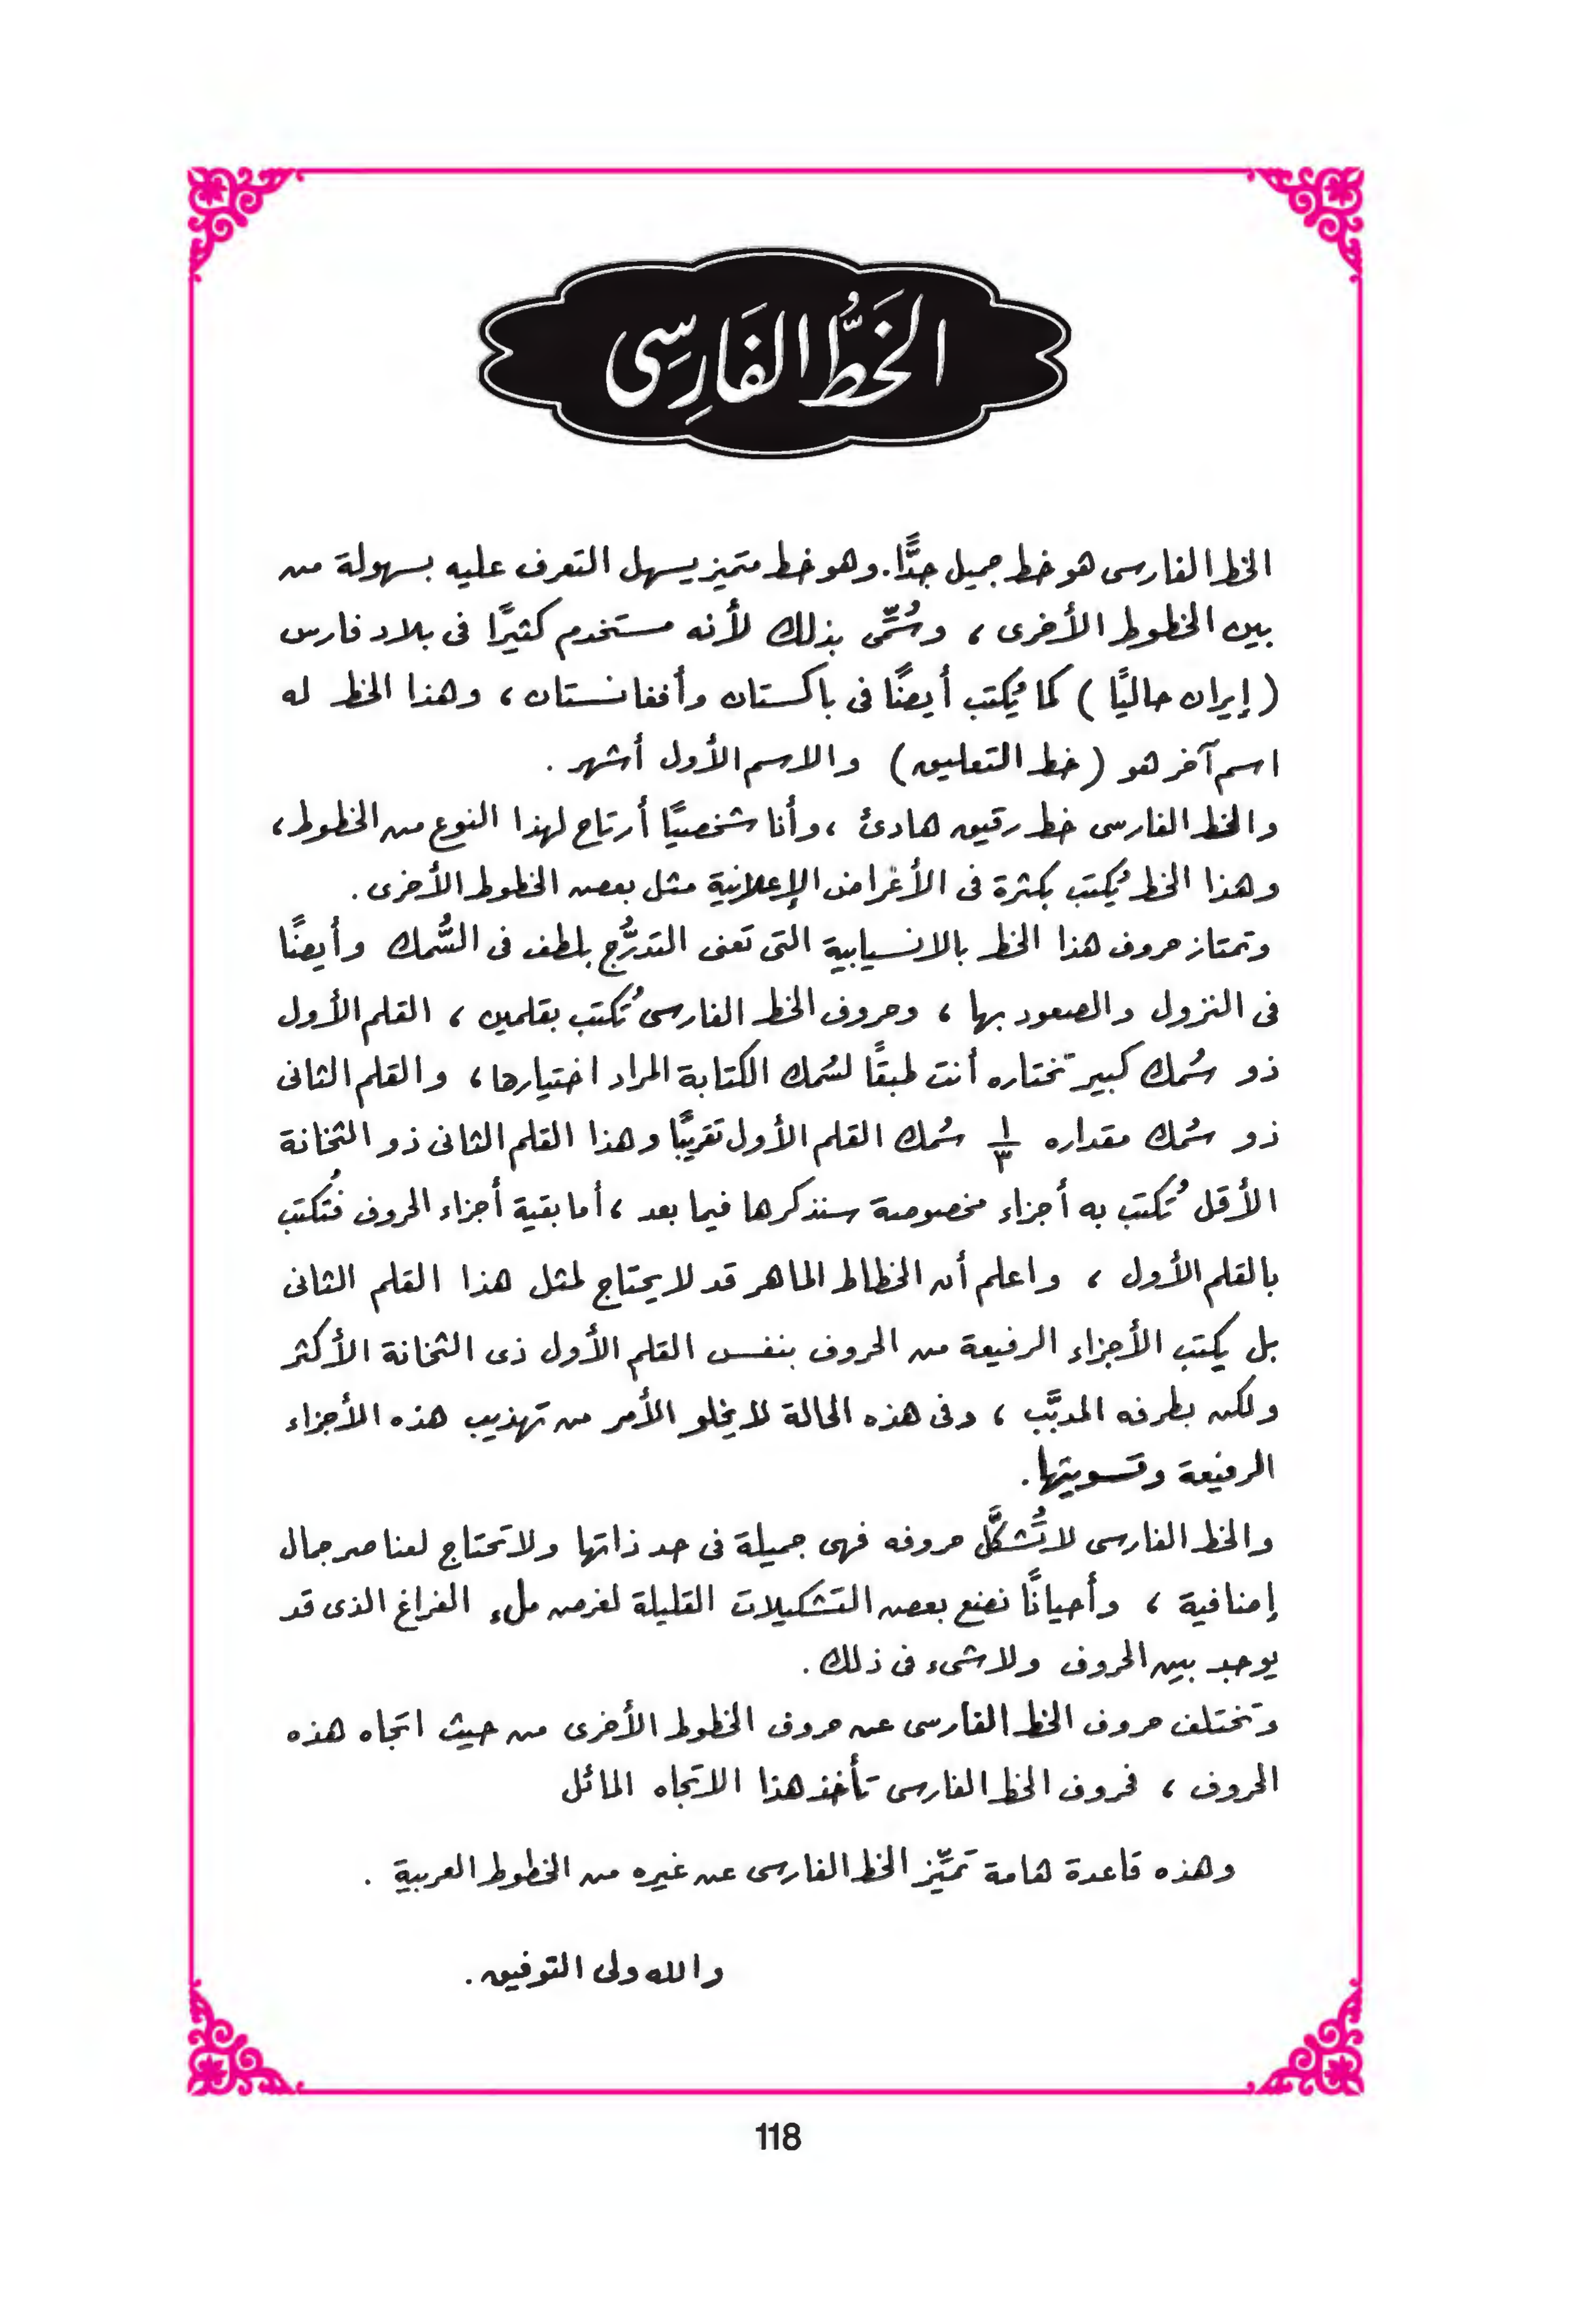 الخَطُّ الفَارِسِى
الخط الفارسى هو خط جميل جدًّا. وهو خط متميز يسهل التعرف عليه بسهولة من
بين الخطوط الأخرى ، وسُمِّى بذلك لأنه مستخدم كثيرًا فى بلاد فارس
( إيران حاليًا ) كما يُكتب أيضًا فى باكستان وأفغانستان ، وهذا الخط له
اسم آخر هو ( خط التعليق ) والاسم الأول أشهر .
والخط الفارسى خط رقيق هادئ ، وأنا شخصيًا أرتاح لهذا النوع من الخطوط ،
وهذا الخط يُكتب بكثرة فى الأغراض الإعلانية مثل بعض الخطوط الأخرى .
وتمتاز حروف هذا الخط بالانسيابية التى تعنى التدرُّج بلطف فى السُّمك وأيضًا
فى النزول والصعود بها ، وحروف الخط الفارسى تُكتب بقلمين ، القلم الأول
ذو سُمك كبير تختاره أنت طبقًا لسُمك الكتابة المراد اختيارها ، والقلم الثانى
ذو سُمك مقداره ١/٣ سُمك القلم الأول تقريبًا وهذا القلم الثانى ذو الثخانة
الأقل تُكتب به أجزاء مخصوصة سنذكرها فيما بعد ، أما بقية أجزاء الحروف فتُكتب
بالقلم الأول ، واعلم أن الخطاط الماهر قد لا يحتاج لمثل هذا القلم الثانى
بل يكتب الأجزاء الرفيعة من الحروف بنفس القلم الأول ذى الثخانة الأكثر
ولكن بطرفه المدبَّب ، وفى هذه الحالة لا يخلو الأمر من تهذيب هذه الأجزاء
الرفيعة وتسويتها .
والخط الفارسى لا تُشكَّل حروفه فهى جميلة فى حد ذاتها ولا تحتاج لعناصر جمال
إضافية ، وأحيانًا نضع بعض التشكيلات القليلة لغرض ملء الفراغ الذى قد
يوجد بين الحروف ولا شىء فى ذلك .
وتختلف حروف الخط الفارسى عن حروف الخطوط الأخرى من حيث اتجاه هذه
الحروف ، فحروف الخط الفارسى تأخذ هذا الاتجاه المائل
وهذه قاعدة هامة تميِّز الخط الفارسى عن غيره من الخطوط العربية .
والله ولى التوفيق .
118